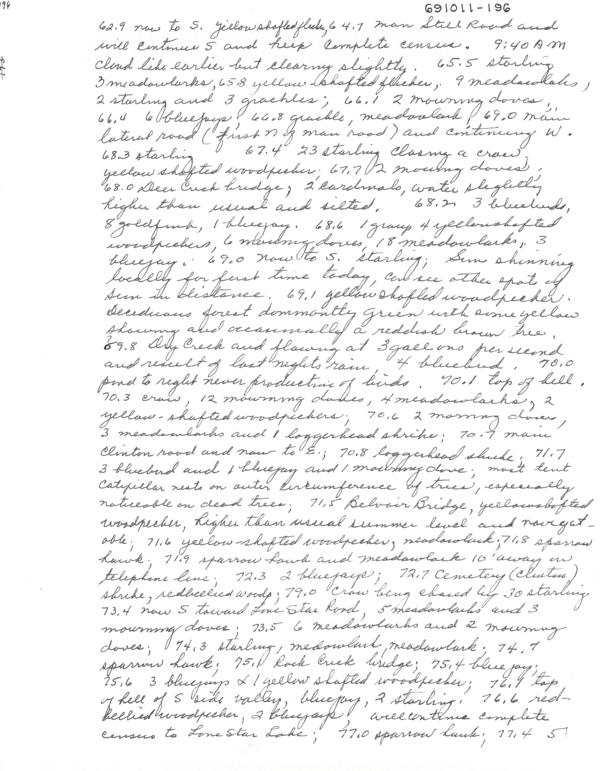 691011-196
62.9 now to S. yellow shafted flicker, 64.7 Man Still Road and
will continue S and keep complete census. 9:40 AM
cloud like earlier but clearing slightly. 65.5 starling
3 meadowlarks, 65.8 yellow-shafted flicker, 9 meadowlarks,
2 starling and 3 grackles; 66.1 2 mourning doves,
66.4 6 bluejays; 66.8 grackle, meadowlark; 69.0 main
lateral road (first N of main road) and continuing W.
68.3 starling 67.4 23 starling chasing a crow,
yellow shafted woodpecker; 67.7 2 mourning doves;
68.0 Deer Creek bridge; 2 cardinals, water slightly
higher than usual and silted. 68.2 3 bluebirds,
8 goldfinch, 1 bluejay. 68.6 1 group 4 yellowshafted
woodpeckers, 6 mourning doves, 18 meadowlarks, 3
bluejay. 69.0 now to S. starling; Sun shinning
locally for first time today, can see other spots of
sun in distance. 69.1 yellow shafted woodpecker.
Deciduous forest dominantly green with some yellow
showing and occasionally a reddish brown tree.
69.8 Dry Creek and flowing at 3 gallons per second
and result of last nights rain, 4 bluebird. 70.0
pond to right never productive of birds. 70.1 top of hill.
70.3 crow, 12 mourning doves, 4 meadowlarks; 2
yellow-shafted woodpeckers; 70.6 2 mourning doves,
3 meadowlarks and 1 loggerhead shrike; 70.7 main
Clinton road and now to E.; 70.8 loggerhead shrike. 71.7
3 bluebird and 1 bluejay and 1 mourning dove; most tent
caterpillar nests on outer circumference of trees, especially
noticeable on dead trees; 71.5 Belvoir Bridge, yellowshafted
woodpecker, higher than usual summer level and navigat-
able; 71.6 yellow-shafted woodpecker, meadowlark; 71.8 sparrow
hawk; 71.9 sparrow hawk and meadowlark 10' away on
telephone line; 72.3 2 bluejays; 72.7 Cemetery (Clinton)
shrike, redbellied woodp; 79.0 crow being chased by 30 starling
73.4 now S toward Lone Star Road, 5 meadowlarks and 3
mourning doves; 73.5 6 meadowlarks and 2 mourning
doves; 74.3 starling, medowlark, meadowlark. 74.7
sparrow hawk; 75.1 Rock Creek bridge; 75.4 bluejay;
75.6 3 bluejays & 1 yellow shafted woodpecker; 76.4 top
of hill of S side valley, bluejay, 2 starling. 76.6 red-
bellied woodpecker, 2 bluejays, will continue complete
census to Lone Star Lake; 77.0 sparrow hawk; 77.4 5